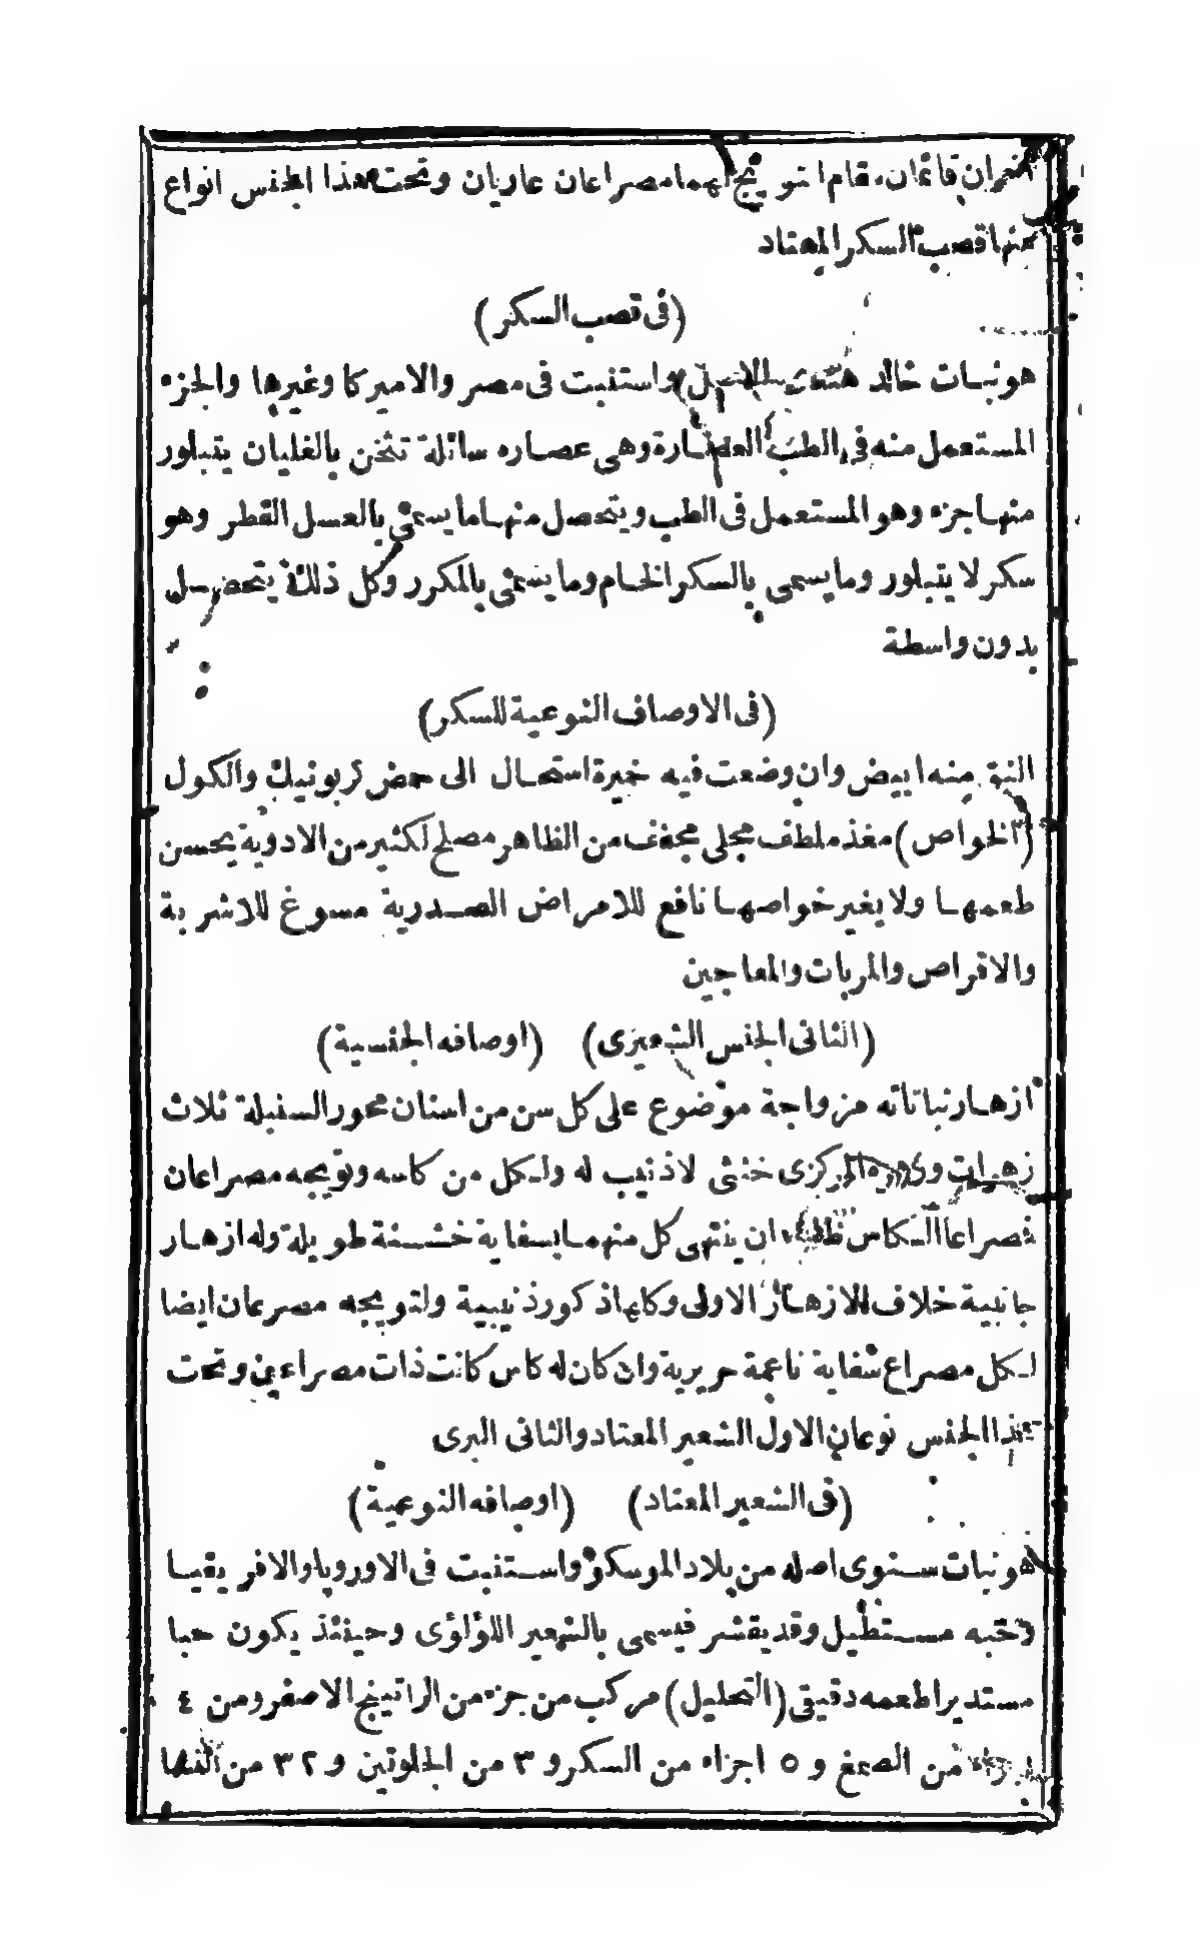 قائمان مقام التويج لهما مصراعان عاريان وتحت هذا الجنس انواع
منها قصب السكر المعتاد
(فى قصب السكر)
هو نبات خالد واستنبت فى مصر والاميركا وغيرها والجزء
المستعمل منه فى الطب العصارة وهى عصاره سائلة تثخن بالغليان يتبلور
منها جزء وهو المستعمل فى الطب ويتحصل منها ما يسمى بالعسل القطر وهو
سكر لا يتبلور وما يسمى بالسكر الخام وما يسمى بالمكرر وكل ذلك يتحصل
بدون واسطة
(فى الاوصاف النوعية للسكر)
النقى منه ابيض وان وضعت فيه خيرة استحال الى حمض كربونيك والكول
(الخواص) مغذ ملطف مجلى مجفف من الظاهر مصلح لكثير من الادوية يحسن
طعمها ولا يغير خواصها نافع للامراض الصدرية مسوغ للاشربة
والاقراص والمربات والمعاجين
(الثانى الجنس الشعيرى) (اوصافه الجنسية)
ازهار نباتاته مزواجة موضوع على كل سن من اسنان محور السنبلة ثلاث
زهرات المركزى خنثى لا ذنيب له ولكل من كاسه وتويجه مصراعان
فصراعا الكاس ينتهى كل منهما بسفاية خشنة طويلة وله ازهار
جانبية خلاف للازهار الاولى وكلها ذكور ذنيبية ولتويجه مصرعان ايضا
لكل مصراع سفاية ناعمة حريرية وان كان له كاس كانت ذات مصراعين وتحت
هذا الجنس نوعان الاول الشعير المعتاد والثانى البرى
(فى الشعير المعتاد) (اوصافه النوعية)
هو نبات سنوى اصله من بلاد الموسكو واستنبت فى الاوروبا والافريقيا
وحبه مستطيل وقد يقشر فيسمى بالشعير اللؤلؤى وحينئذ يكون حبا
مستديرا طعمه دقيقى (التحليل) مركب من جزء من الراتينج الاصفر ومن ٤
اجزاء من الصمغ و ٥ اجزاء من السكر و ٣ من الجلوتين و ٣٢ من النشا